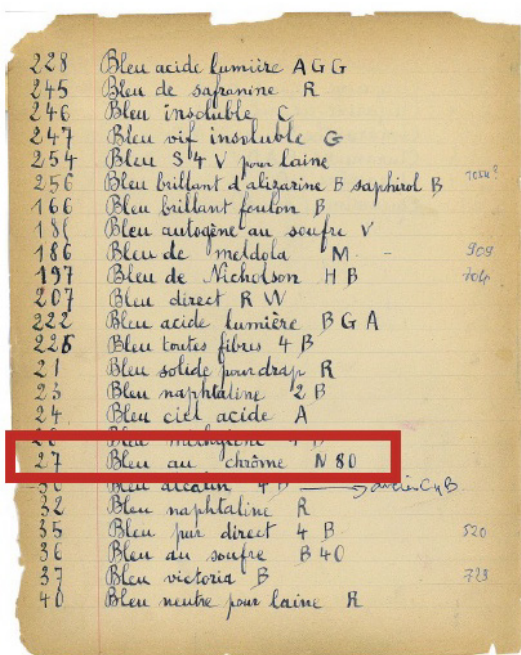 228 Bleu acide lumière AGG
245 Bleu de safranine R
246 Bleu insoluble C
247 Bleu vif insoluble G
254 Bleu S4V pour laine
256 Bleu brillant d'alizarine B saphirol B
166 Bleu brillant foulon B
Bleu autogène au soufre V
186 Bleu de meldola M - 909
197 Bleu de Nicholson HB 704
207 Bleu direct RW
222 Bleu acide lumière BGA
226 Bleu toutes fibres 4B
21 Bleu solide pour drap R
23 Bleu naphtaline 2B
24 Bleu ciel acide A
Bleu B
27 Bleu au chrôme N 80
30 Bleu alcalin 4B
32 Bleu naphtaline R
35 Bleu pur direct 4 B 520
36 Bleu au soufre B40
37 Bleu victoria B 729
40 Bleu neutre pour laine R